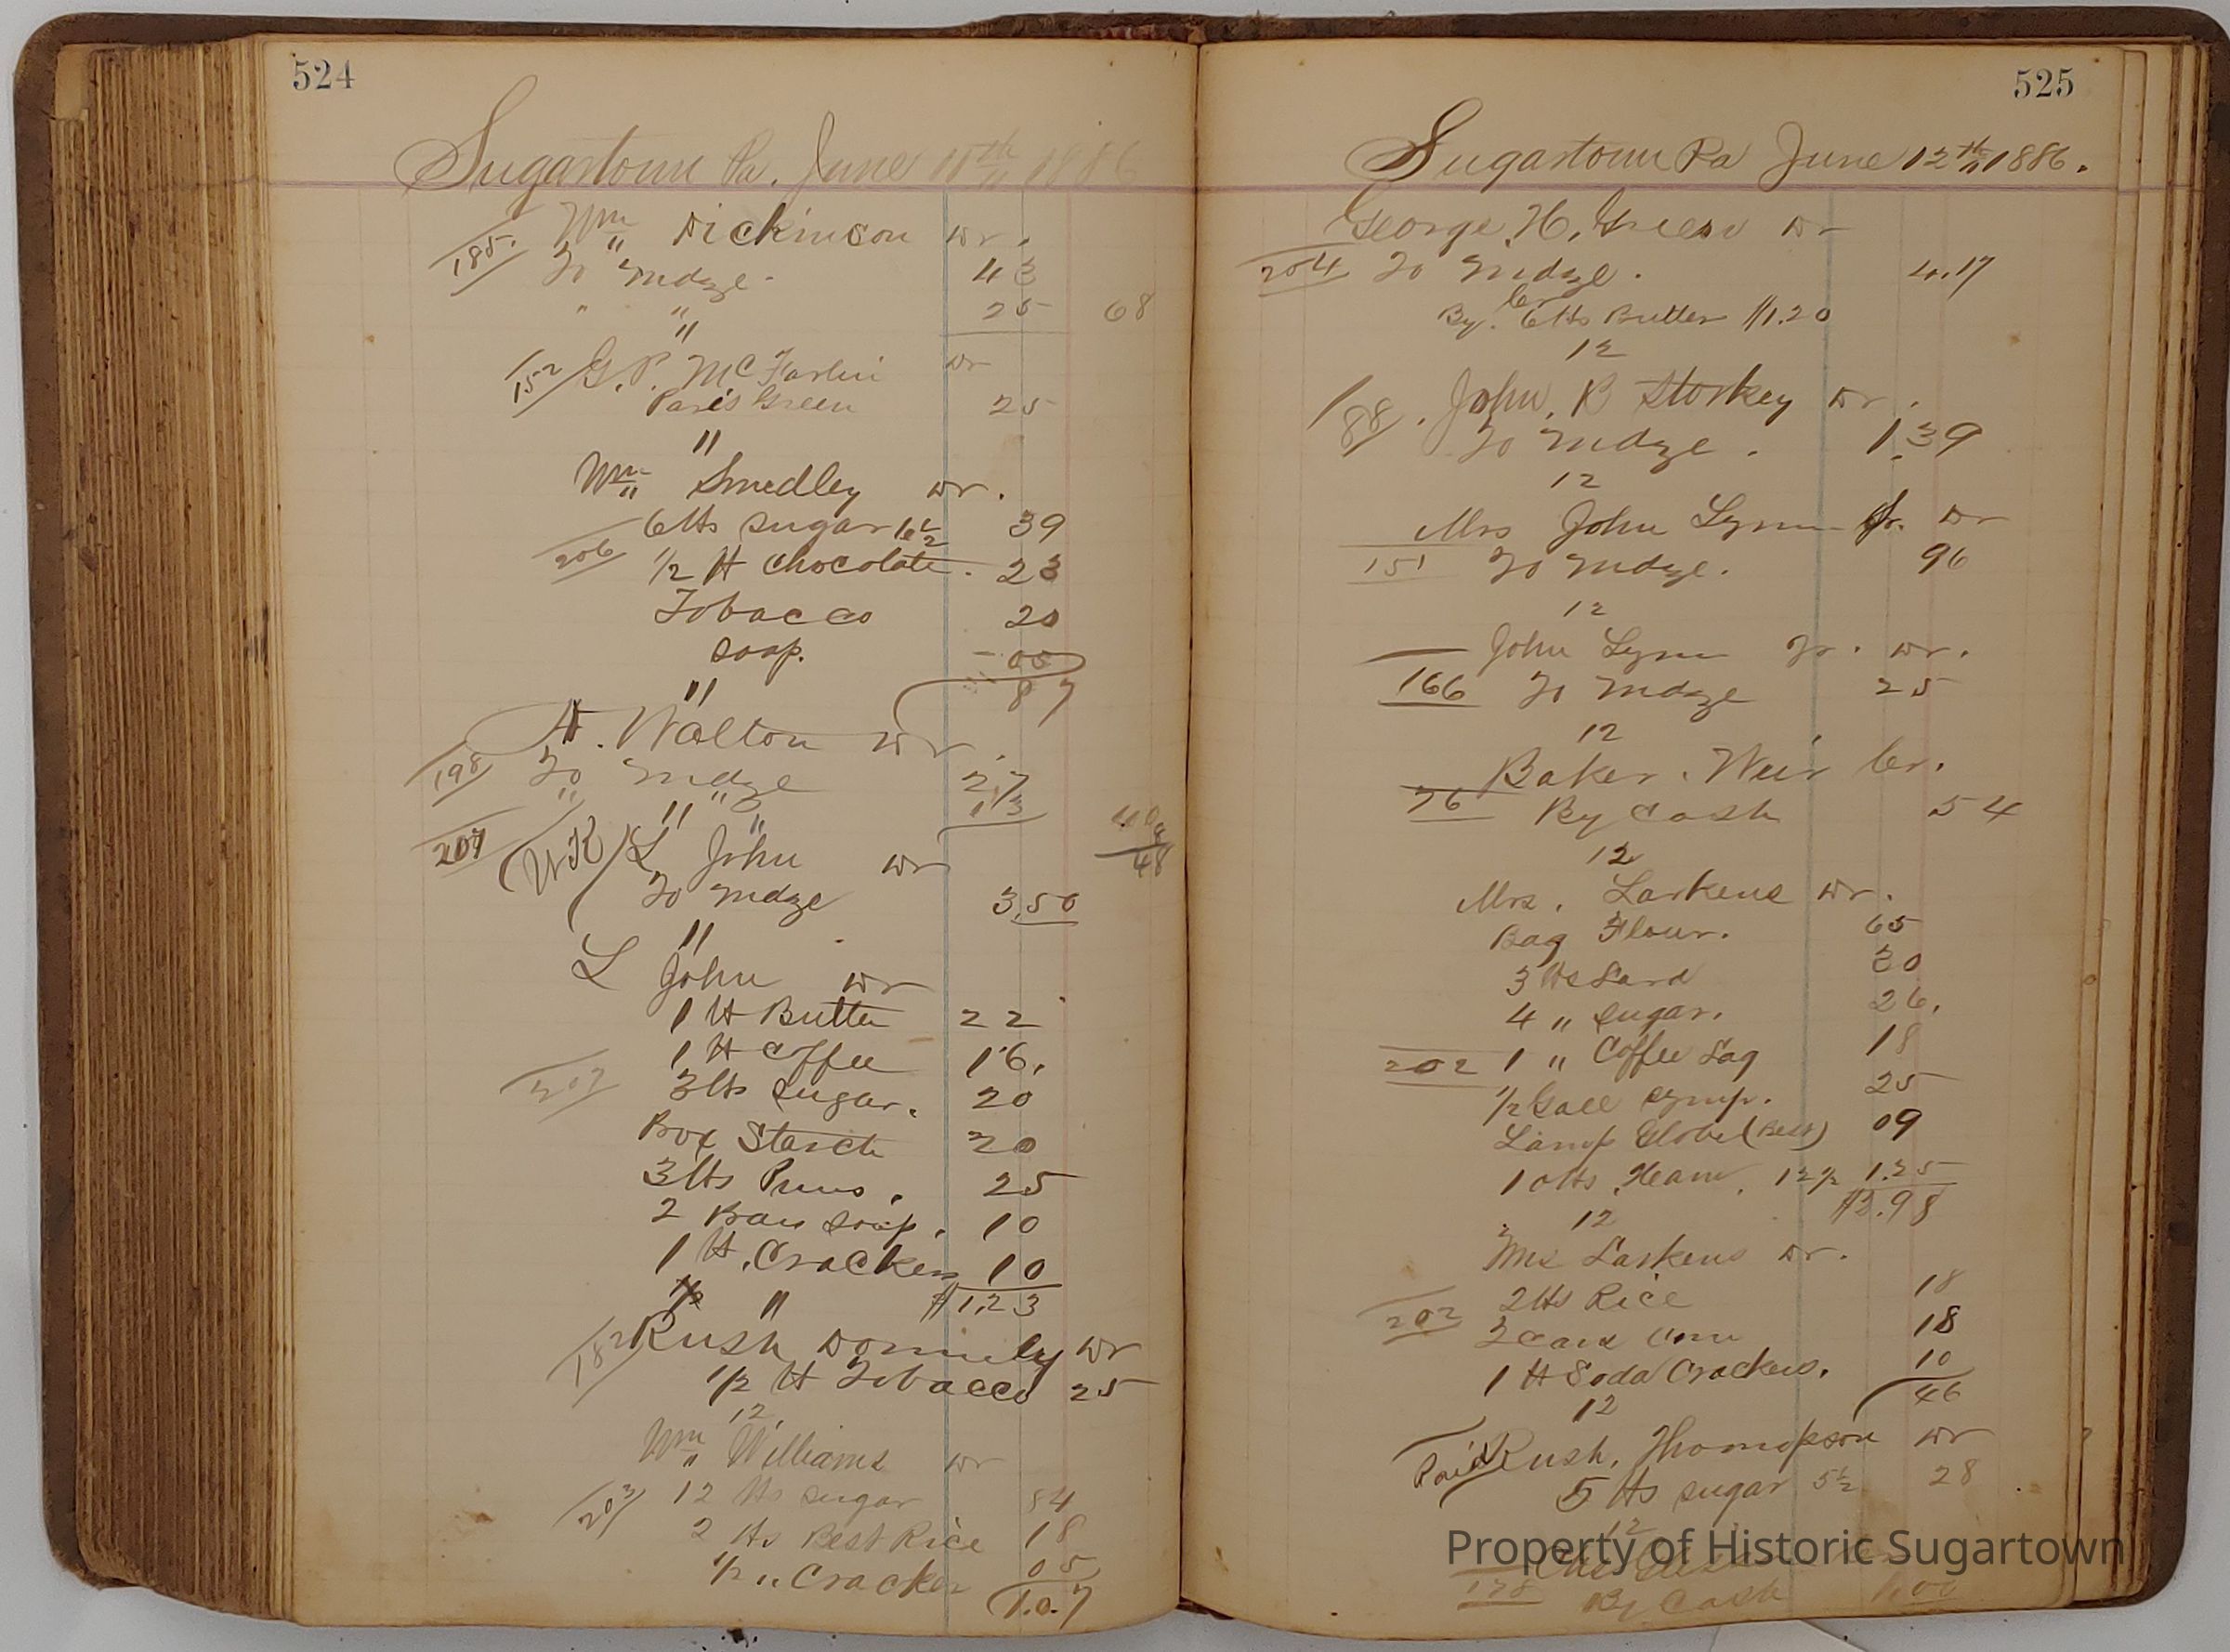 524
Sugartown Pa. June 11th 1886
Wm Dickinson Dr.
185. To Mdze. 43
" " 25 68
"
152 G. P. McFarlin Dr
Paris Green 25
"
Wm Smedley Dr.
6 lbs Sugar 6½ 39
206 1/2 lb Chocolate. 23
Tobacco 20
Soap. 05
" 87
H. Walton Dr.
198 To Mdze 27
" " 13 40
" " 8
48
207 (WK) L John Dr
To Mdze 3.50
"
L John Dr
1 lb Butter 22
1 lb Coffee 16.
207 3 lbs Sugar. 20
Box Starch 20
3 lbs Pruns. 25
2 Bars Soap. 10
1 lb. Crackers 10
" $1.23
182 Rush Donnely Dr
1/2 lb Tobacco 25
12.
Wm Williams Dr
203 12 lbs Sugar 84
2 lbs Best Rice 18
1/2 " Cracker 05
1.0.7
525
Sugartown Pa June 12th 1886.
George. H. Green Dr
204 To Mdze. 4.17
Cr
By. 6 lbs Butter $1.20
12
188. John. B Storkey Dr.
To Mdze. 1.39
12
Mrs John Lynn Sr. Dr
151 To Mdze. 96
12
John Lynn Jr. Dr.
166 To Mdze 25
12
Baker. Weir Cr.
76 By Cash 54
12
Mrs. Larkens Dr.
Bag Flour. 65
3 lbs Lard 30
4 " Sugar. 26.
202 1 " Coffee Lag 18
1/2 Gall Syrup. 25
Lamp Globe (Best) 09
10 lbs. Ham. 12½ 1.25
12 $2.98
Mrs Larkens Dr.
2 lbs Rice 18
202 2 Cans Corn 18
1 lb Soda Crackers. 10
12 46
Paid Rush. Thompson Dr
5 lbs Sugar 5½ 28
12
Property of Historic Sugartown
178 By Cash 1.00